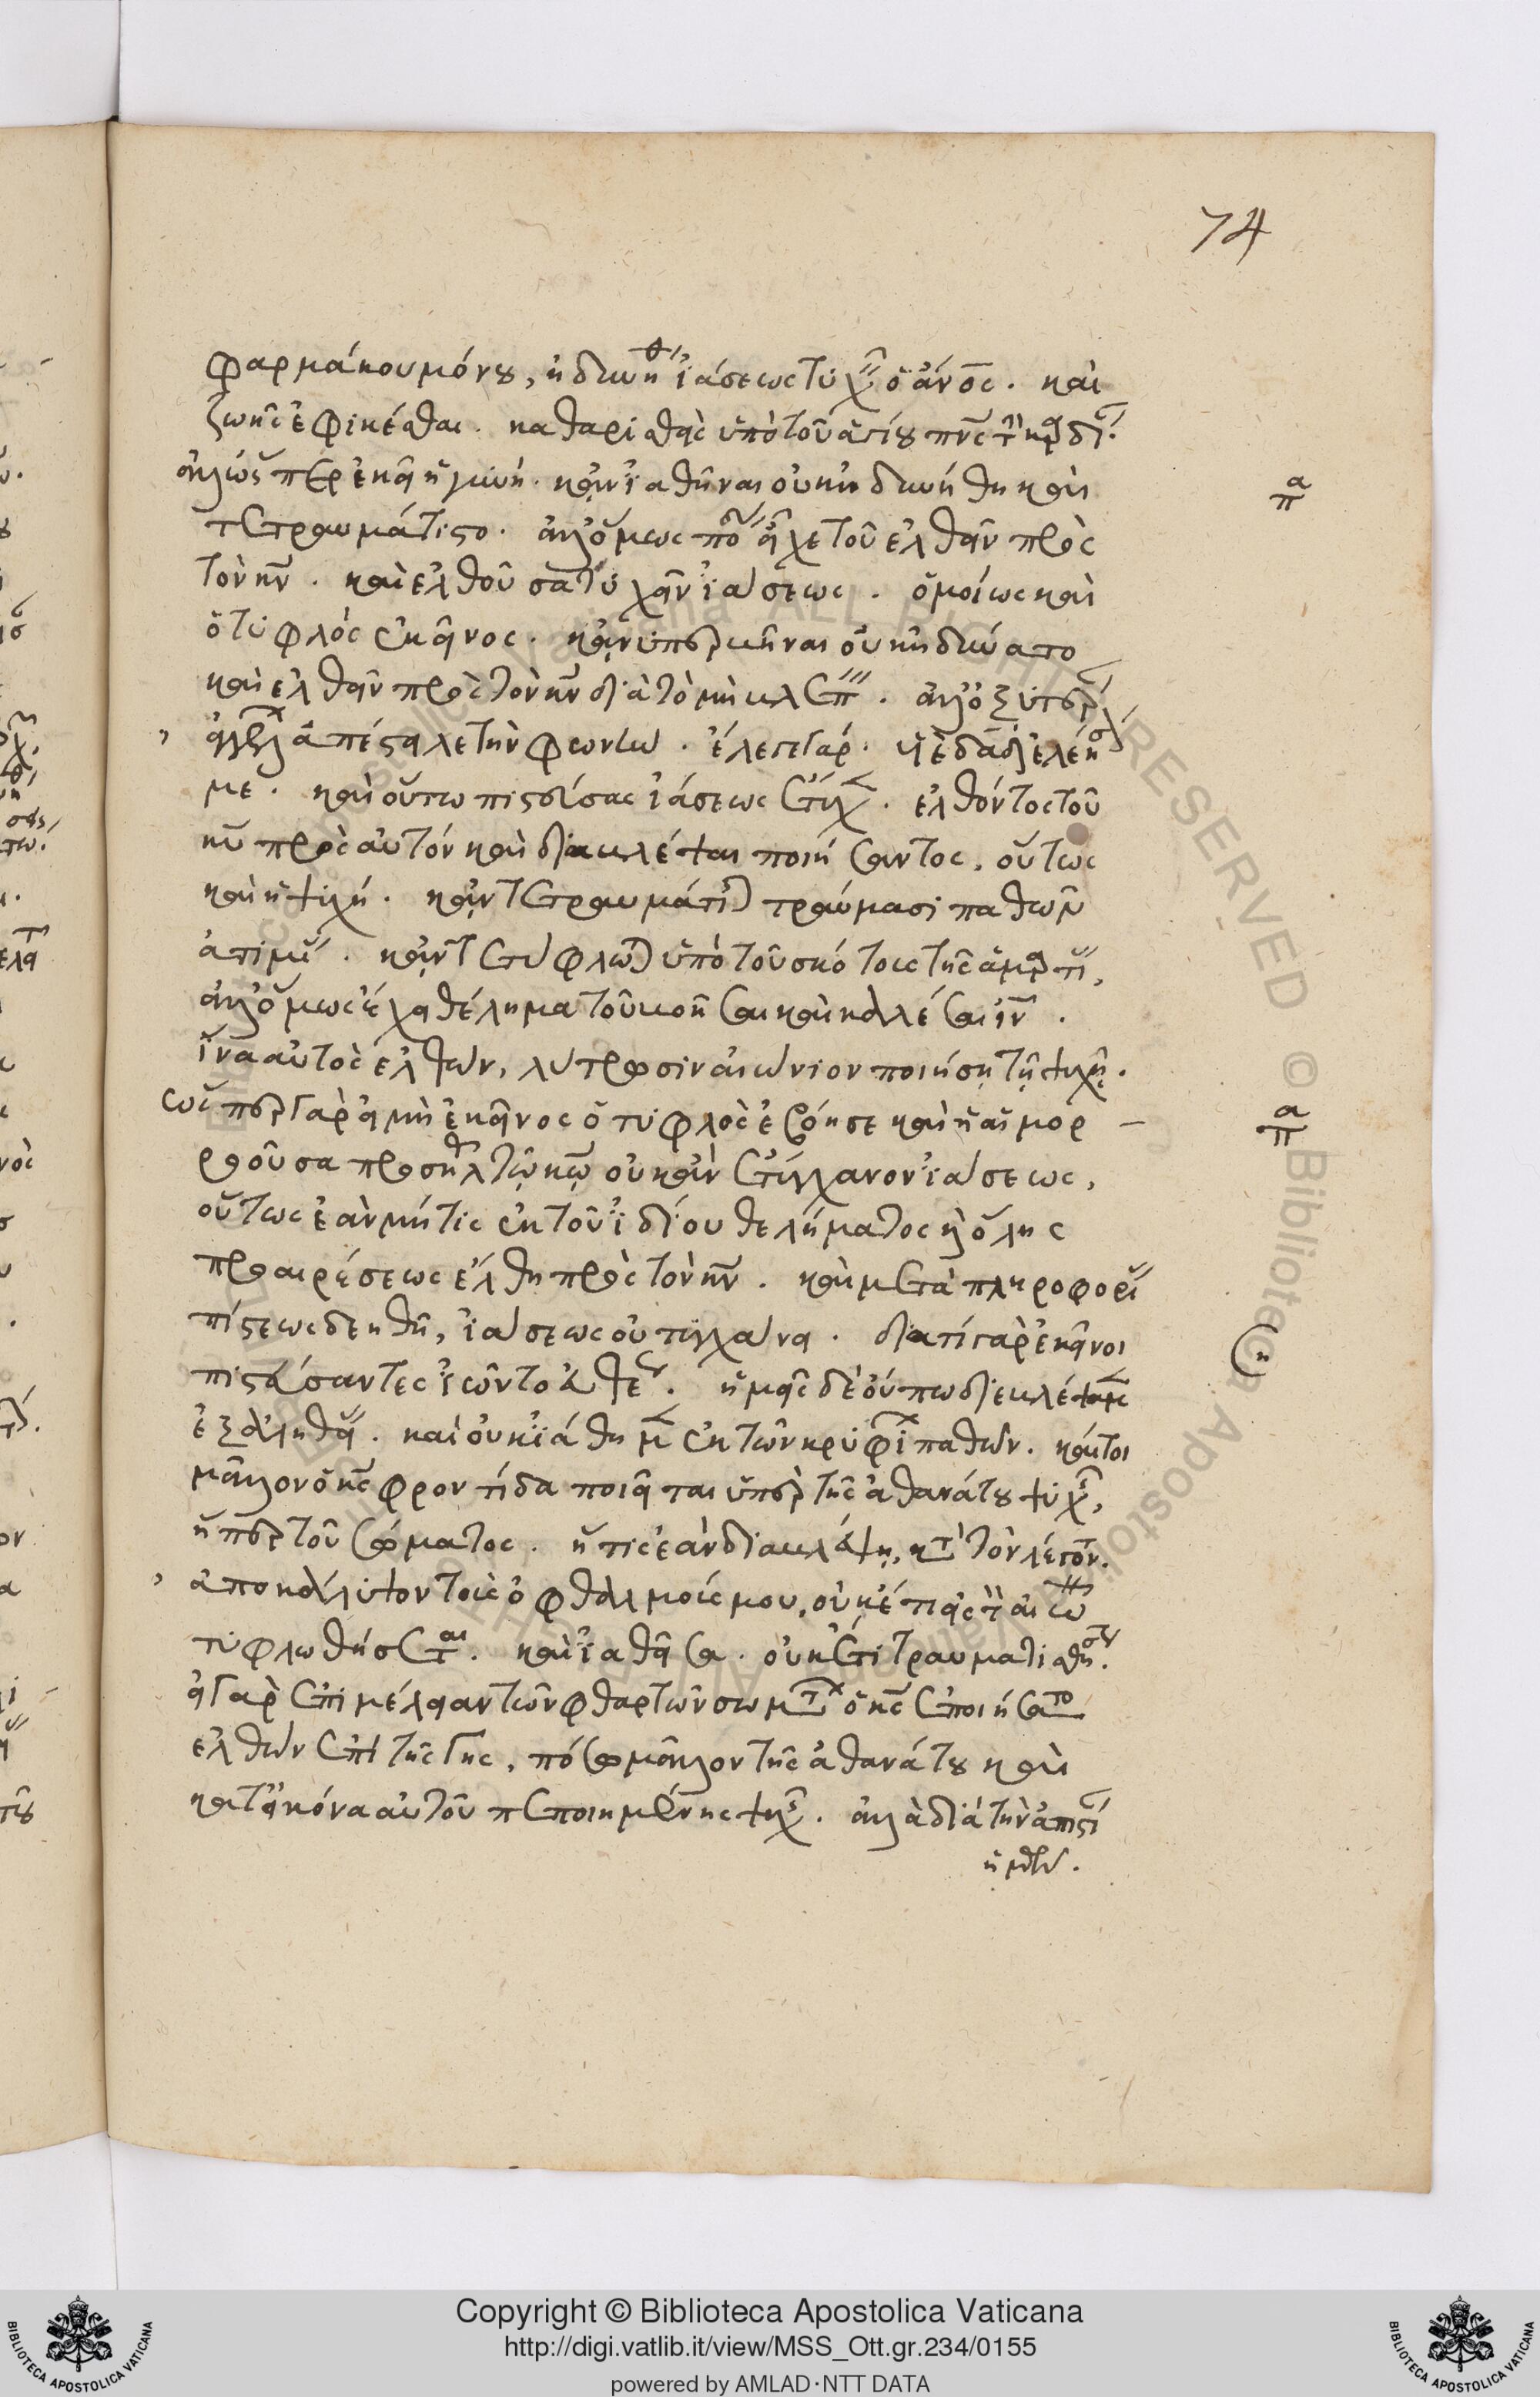 74
φαρμάκου μόνου, ἠδυνήθη ἰάσεως τυχεῖν ὁ ἄνος. καὶ
ζωῆς ἐφικέσθαι. καθαρισθεὶς ὑπὸ τοῦ ἁγίου πνς τὴν καρδίαν.
ἀλλ' ὥσπερ ἐκεῖ ἡ γυνὴ. κἂν ἰαθῆναι οὐκ ἠδυνήθη καὶ
τετραυμάτιστο. ἀλλ' ὅμως πόδας εἶχε τοῦ ἐλθεῖν πρὸς
τὸν κν. καὶ ἐλθοῦσα τυχεῖν ἰάσεως. ὁμοίως καὶ
ὁ τυφλὸς ἐκεῖνος. κἂν
καὶ ἐλθεῖν πρὸς τὸν κν διὰ τὸ μὴ βλέπειν. ἀλλ' ὀξυτέραν
ἀγγέλων ἀπέστειλε τὴν φωνὴν. ἔλεγε γὰρ. υἱὲ δαδ ἐλέησόν
με. καὶ οὕτω πιστεύσας ἰάσεως ἔτυχεν. ἐλθόντος τοῦ
κυ πρὸς αὐτὸν καὶ διαβλέψαι ποιήσαντος. οὕτως
καὶ ἡ ψυχή. κἂν τετραυμάτισται τραύμασι παθῶν
ἀτιμίας. κἂν τετύφλωται ὑπὸ τοῦ σκότους τῆς ἁμαρτίας,
ἀλλ' ὅμως ἔχει θέλημα τοῦ βοῆσαι καὶ καλέσαι ἰν.
ἵνα αὐτὸς ἐλθὼν, λύτρωσιν αἰώνιον ποιήσῃ τῇ ψυχῇ.
ὥσπερ γὰρ εἰ μὴ ἐκεῖνος ὁ τυφλὸς ἐβόησε καὶ ἡ αἱμορ
ροοῦσα προσῆλθε τῷ κω οὐκ ἂν ἐτύγχανον ἰάσεως,
οὕτως ἐὰν μή τις ἐκ τοῦ ἰδίου θελήματος καὶ ὅλης
προαιρέσεως ἔλθῃ πρὸς τὸν κν. καὶ μετὰ πληροφορίας
πίστεως δεηθῇ, ἰάσεως οὐ τυγχάνει. διατί γὰρ ἐκεῖνοι
πιστεύσαντες ἰῶντο εὐθέως. ἡμεῖς δὲ οὔπω διεβλέψαμεν
ἐξ ἀληθείας. καὶ οὐκ ἰάθημεν ἐκ τῶν κρυφίων παθῶν. καίτοι
μᾶλλον ὁ κς φροντίδα ποιεῖται ὑπὲρ τῆς ἀθανάτου ψυχῆς,
ἤπερ τοῦ σώματος. ἥτις ἐὰν διαβλέψῃ, κατὰ τὸν λέγοντα.
ἀποκάλυψον τοὺς ὀφθαλμούς μου, οὐκέτι εἰς τὸν αἰῶνα
τυφλωθήσεται. καὶ ἰαθεῖσα. οὐκέτι τραυματισθήσεται.
εἰ γὰρ ἐπιμέλειαν τῶν φθαρτῶν σωμάτων ὁ κς ἐποιήσατο
ἐλθὼν ἐπὶ τῆς γῆς, πόσῳ μᾶλλον τῆς ἀθανάτου καὶ
κατ' εἰκόνα αὐτοῦ πεποιημένης ψυχῆς. ἀλλὰ διὰ τὴν ἀπιστίαν
ἡμῶν.
Copyright © Biblioteca Apostolica Vaticana
http://digi.vatlib.it/view/MSS_Ott.gr.234/0155
powered by AMLAD·NTT DATA